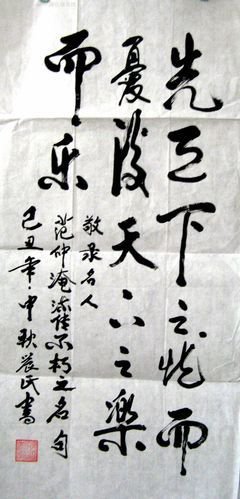 先天下之忧而
憂後天下之樂
而乐
敬录名人
范仲淹流传不朽之名句
己丑年中秋書